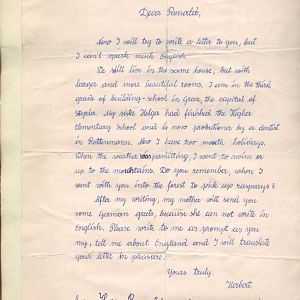 Dear Ronald,
Now I will try to write a letter to you, but
I can't speak much English.
We still live in the same house, but with
larger and more beautiful rooms. I am in the third
grade of building-school in Graz, the capital of
Styria. My sister Helga had finished the Higher
Elementary school and is now probationer by a dentist
in Rottenmann. Now I have two month holidays.
When the weather was permitting, I went to swim or
up to the mountains. Do you remember, when I
went with you into the forest to pick up raspberrys?
After my writing, my mother will send you
some German greets, because she can not write in
english. Please write to me as prompt as you
may, tell me about England and I will translate
your letter in pleasure.
Yours truly.
Herbert.